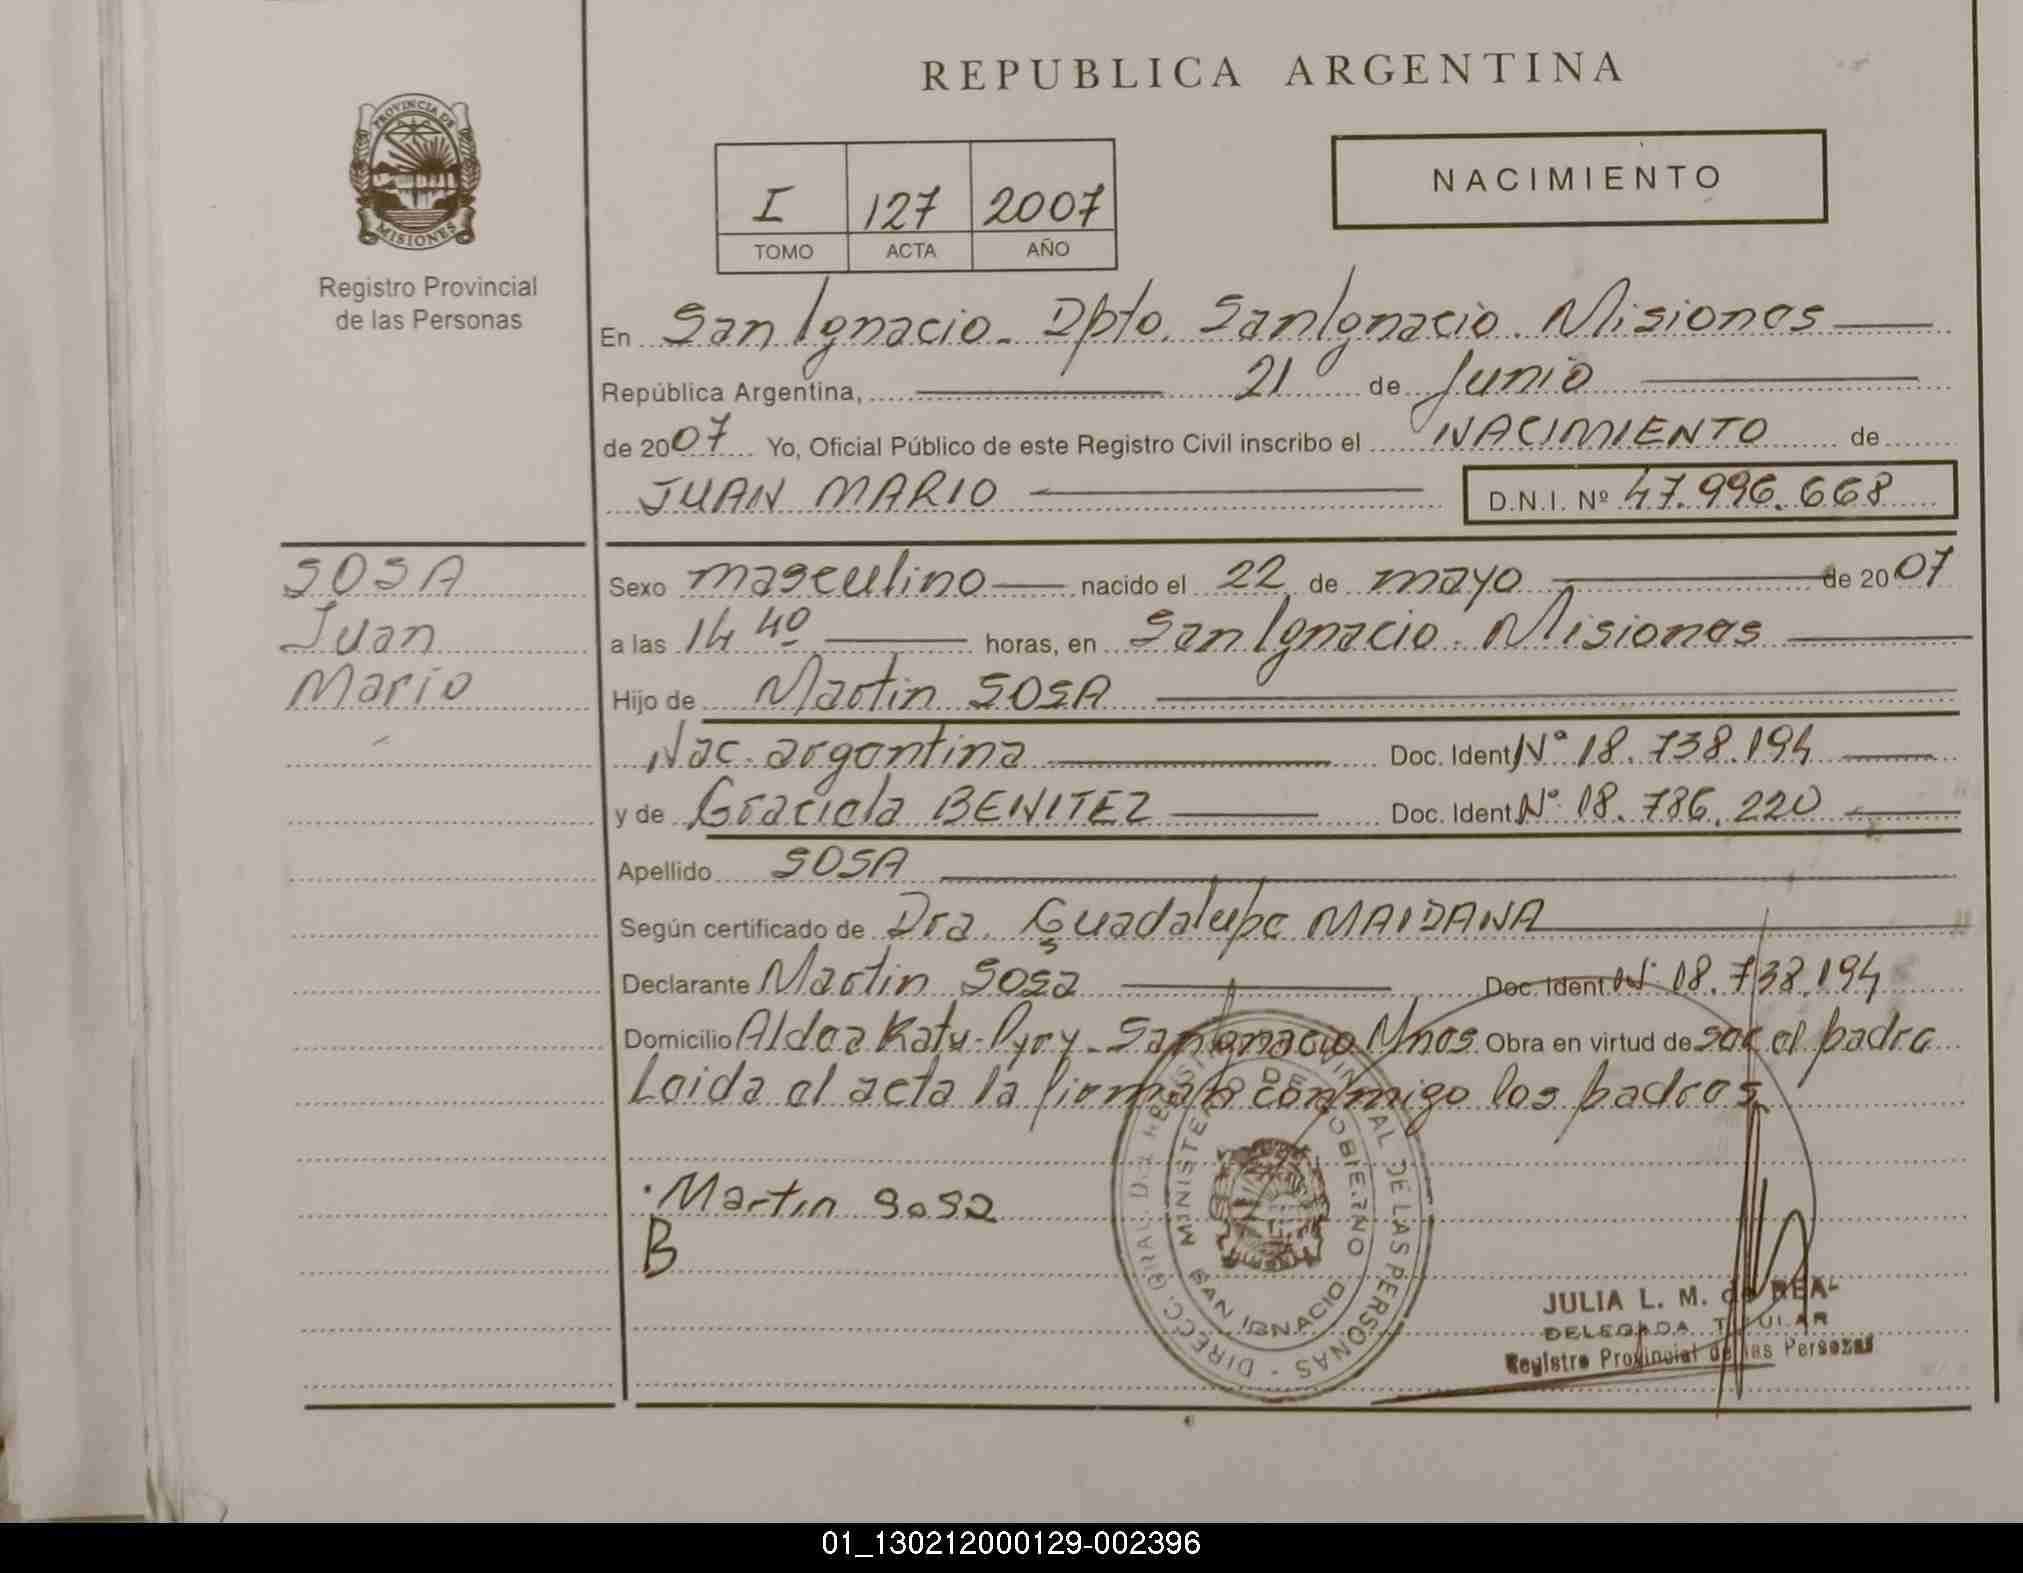 REPUBLICA ARGENTINA
PROVINCIA DE
MISIONES
Registro Provincial
de las Personas
I 127 2007
TOMO ACTA AÑO
NACIMIENTO
En San Ignacio - Dpto. San Ignacio. Misiones
República Argentina, 21 de Junio
de 2007 Yo, Oficial Público de este Registro Civil inscribo el NACIMIENTO de
JUAN MARIO D.N.I. Nº 47.996.668
SOSA
Juan
Mario
Sexo masculino nacido el 22 de mayo de 2007
a las 14 40 horas, en San Ignacio. Misiones
Hijo de Martin SOSA
Nac. argentina Doc. Ident Nº 18.738.194
y de Graciela BENITEZ Doc. Ident Nº 18.786.220
Apellido SOSA
Según certificado de Dra. Guadalupe MAIDANA
Declarante Martin Sosa Doc. Ident Nº 18.738.194
Domicilio Aldea Katu-Pyry - San Ignacio Mnes. Obra en virtud de ser el padre
Leida el acta la firman conmigo los padres
Martin Sosa
B
DIRECC. GRAL. DEL REGISTRO PROVINCIAL DE LAS PERSONAS -
MINISTERIO DE GOBIERNO
SAN IGNACIO
JULIA L. M. de REA
DELEGADA TITULAR
Registro Provincial de las Personas
01_130212000129-002396